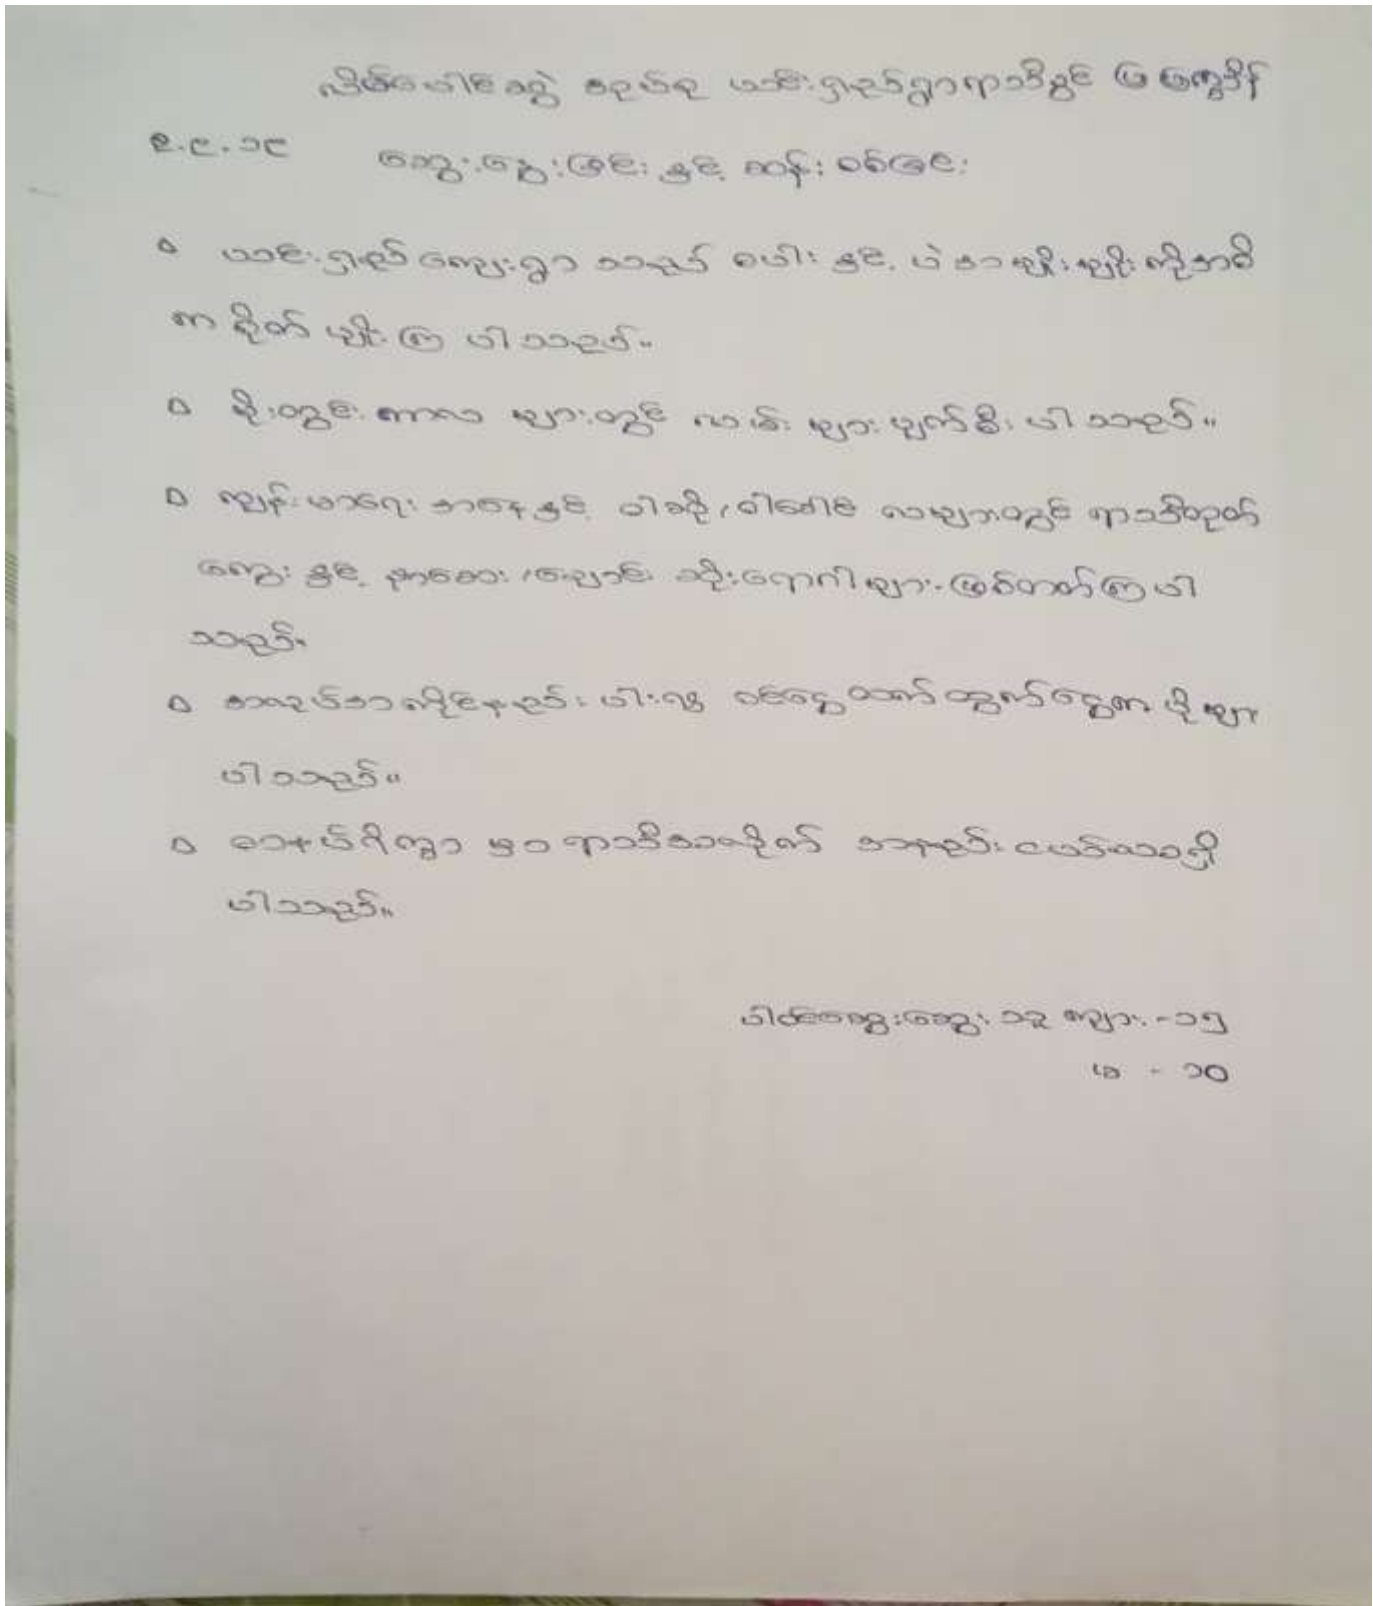 လိမ်ပေါင်ခွဲ အုပ်စု ဟင်းရှည်ရွာရာသီခွင် ပြ က္ခဒိန်
၉.၉.၁၉ ဆွေး‌နွေးခြင်း နှင့် ဆန်းစစ်ခြင်း
ဟင်းရှည် ကျေးရွာ သည် စပါး နှင့် ပဲ အမျိုးမျိုး ကိုအဓိ
က စိုက် ပျိုး ကြ ပါသည်။
မိုးတွင်း ကာလ များတွင် လမ်း များ ပျက်စီး ပါသည်။
ကျန်းမာရေး အနေနှင့် ဝါဆို၊ ဝါခေါင် လများတွင် ရာသီတုတ်
ကွေး နှင့် နှာစေး၊ ချောင်း ဆိုးရောဂါများ ဖြစ်တတ်ကြ ပါ
သည်။
အလုပ်အကိုင်နည်း ပါး၍ ဝင်ငွေထက်ထွက်ငွေက ပို များ
ပါသည်။
ရာသီအလိုက် အနည်းငယ်သာရှိ
ပါသည်။
ပါဝင်ဆွေးနွေး သူ ကျား - ၁၅
မ - ၁၀